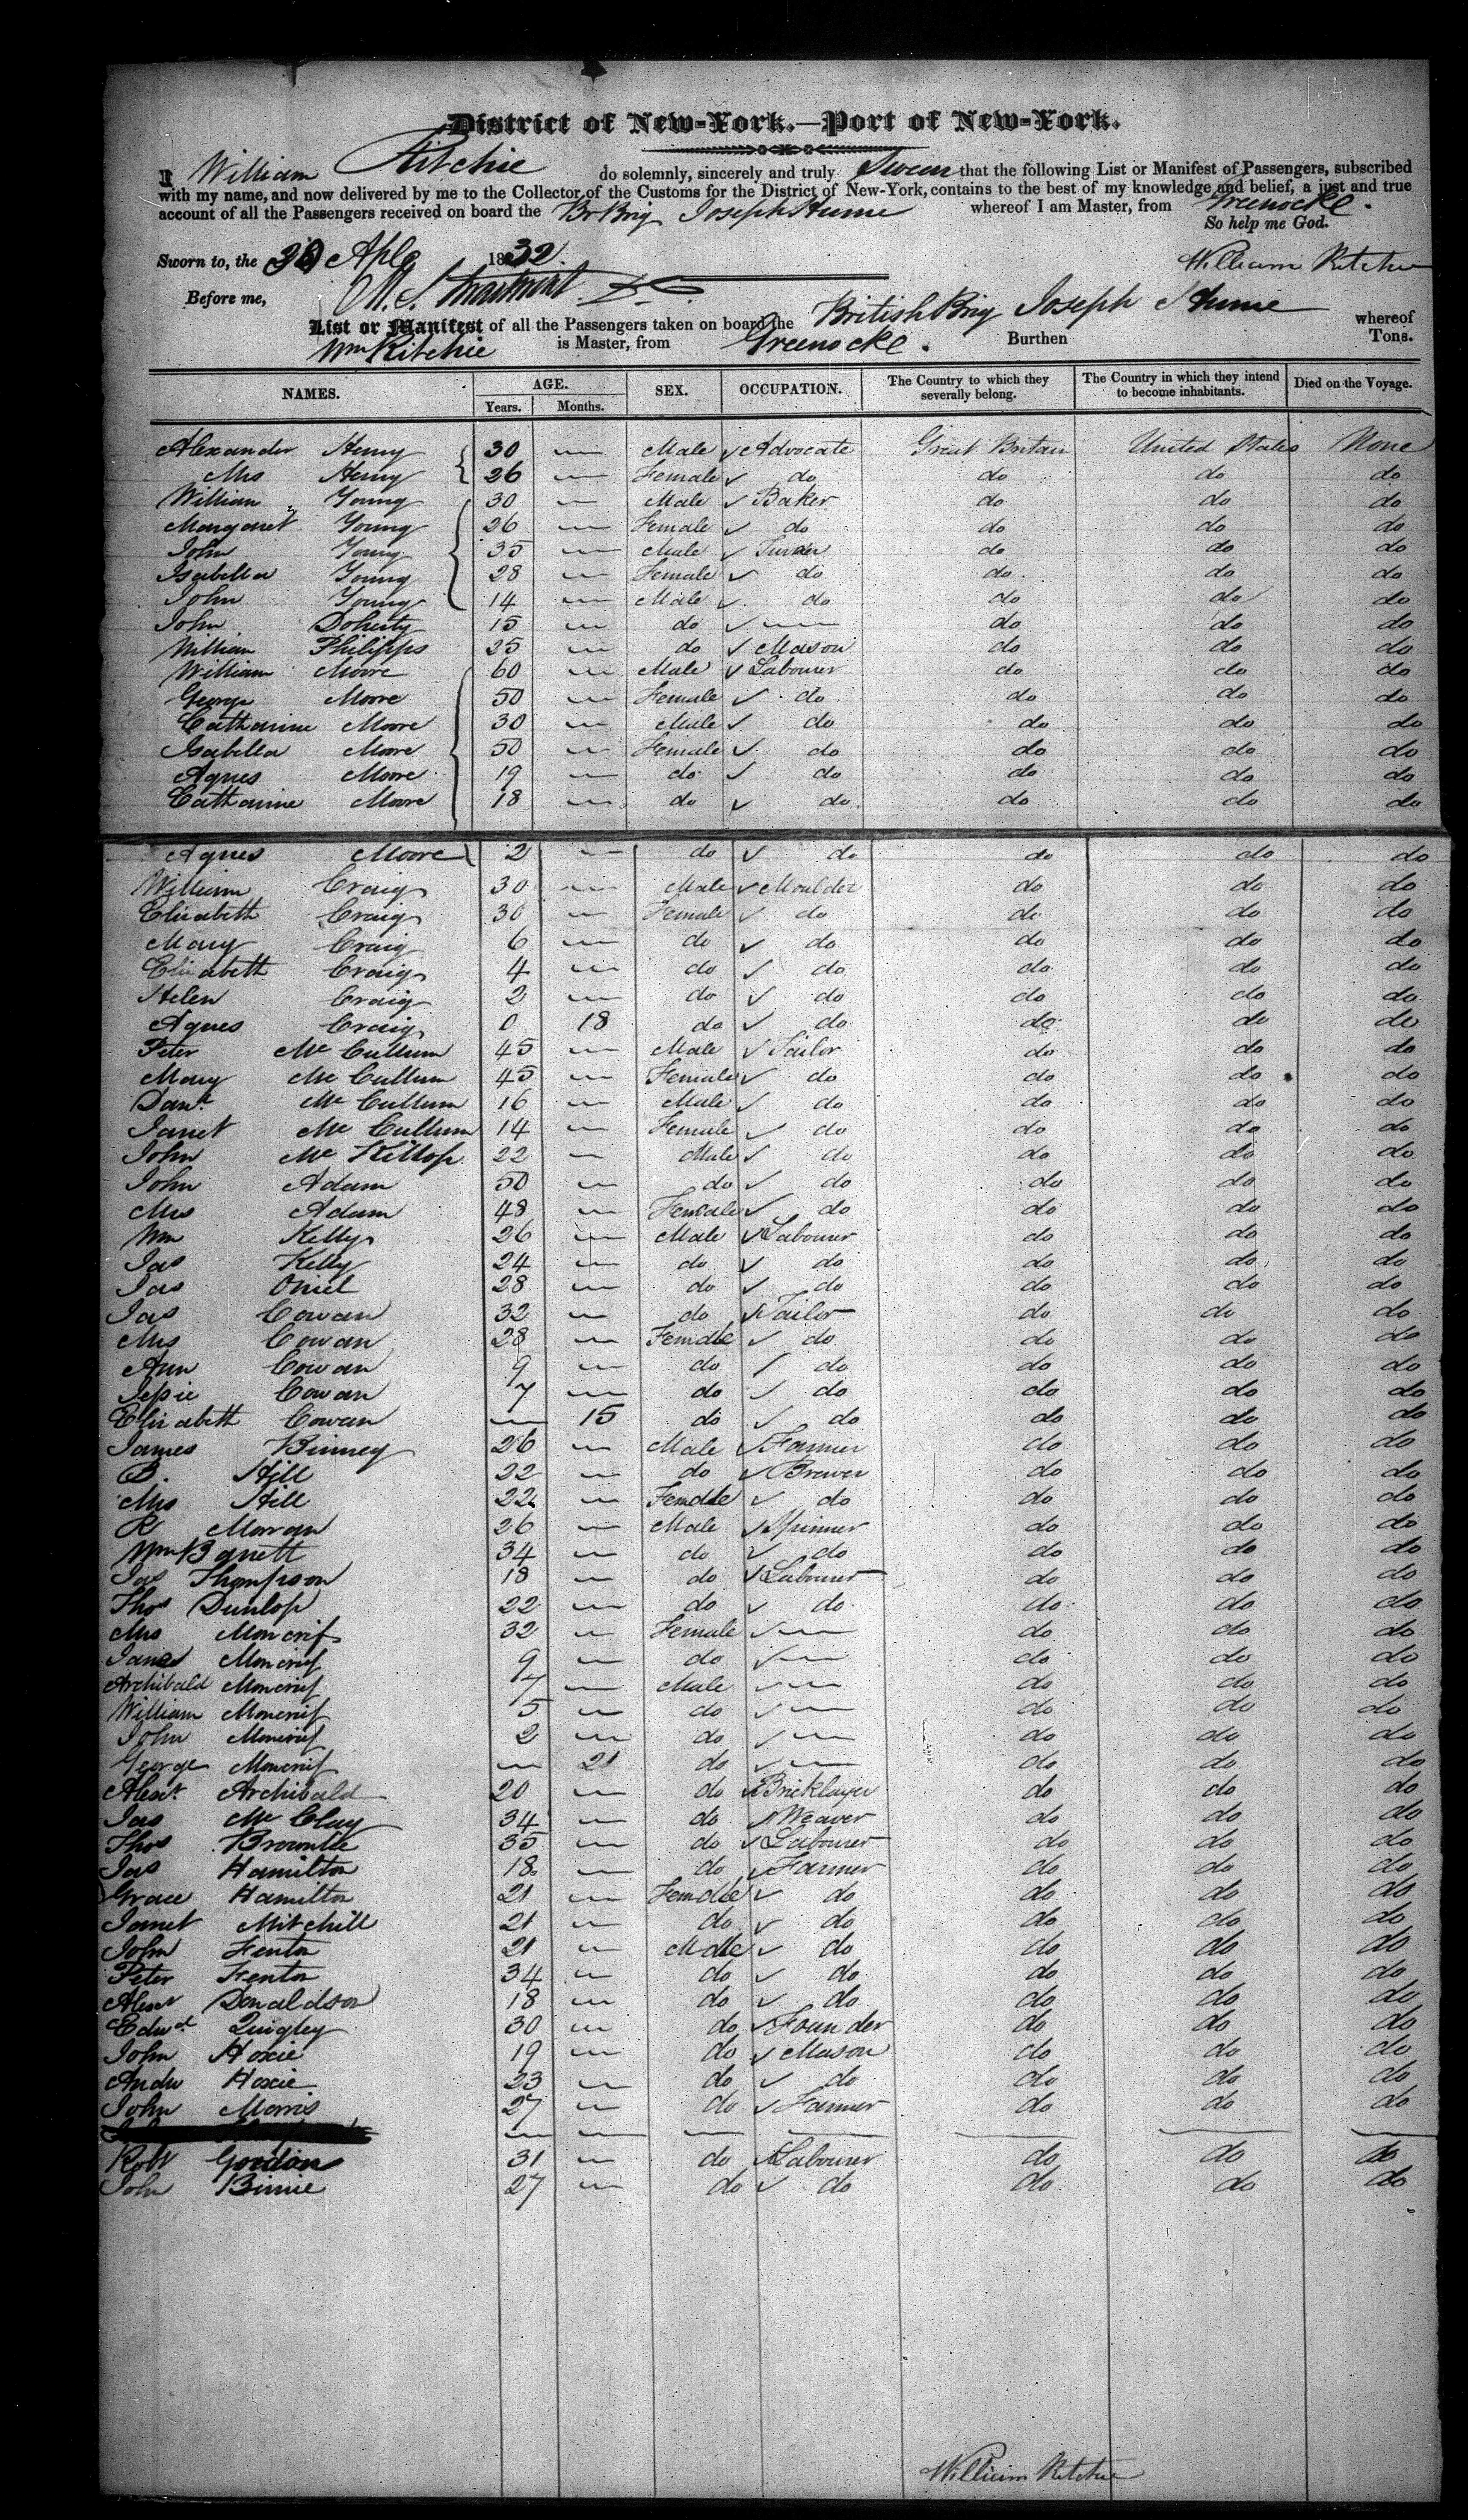 District of New-York.—Port of New-York.
I William Ritchie do solemnly, sincerely and truly Swear that the following List or Manifest of Passengers, subscribed
with my name, and now delivered by me to the Collector of the Customs for the District of New-York, contains to the best of my knowledge and belief, a just and true
account of all the Passengers received on board the Br Brig Joseph Hume whereof I am Master, from Greenocke.
So help me God.
Sworn to, the 30 Apl 1832. William Ritchie
Before me,
List or Manifest of all the Passengers taken on board the British Brig Joseph Hume whereof
Wm Ritchie is Master, from Greenocke. Burthen Tons.
NAMES. AGE. SEX. OCCUPATION. The Country to which they severally belong. The Country in which they intend to become inhabitants. Died on the Voyage.
Years. Months.
Alexander Henry 30 — Male Advocate Great Britain United States None
Mrs Henry 26 — Female do do do do
William Young 30 — Male Baker do do do
Margaret Young 26 — Female do do do do
John Young 35 — Male Turner do do do
Isabella Young 28 — Female do do do do
John Young 14 — Male do do do do
John Doherty 15 — do — do do do
William Philipps 25 — do Mason do do do
William Moore 60 — Male Labourer do do do
George Moore 50 — Female do do do do
Catharine Moore 30 — Male do do do do
Isabella Moore 50 — Female do do do do
Agnes Moore 19 — do do do do do
Catharine Moore 18 — do do do do do
Agnes Moore 2 — do do do do do
William Craig 30 — Male Moulder do do do
Elizabeth Craig 30 — Female do do do do
Mary Craig 6 — do do do do do
Elizabeth Craig 4 — do do do do do
Helen Craig 2 — do do do do do
Agnes Craig 0 18 do do do do do
Peter Mc Cullum 45 — Male Tailor do do do
Mary Mc Cullum 45 — Female do do do do
Danl Mc Cullum 16 — Male do do do do
Janet Mc Cullum 14 — Female do do do do
John Mc Killop 22 — Male do do do do
John Adam 50 — do do do do do
Mrs Adam 48 — Female do do do do
Wm Kelly 26 — Male Labourer do do do
Jas Kelly 24 — do do do do do
Jas Oniel 28 — do do do do do
Jas Cowan 32 — do Tailor do do do
Mrs Cowan 28 — Female do do do do
Ann Cowan 9 — do do do do do
Jessie Cowan 7 — do do do do do
Elizabeth Cowan — 15 do do do do do
James Binney 26 — Male Farmer do do do
B. Hill 22 — do Brewer do do do
Mrs Hill 22 — Female do do do do
R Moran 26 — Male Spinner do do do
Wm Barrett 34 — do do do do do
Jas Thompson 18 — do Labourer do do do
Thos Dunlop 22 — do do do do do
Mrs Moncrif 32 — Female — do do do
Janet Moncrif 9 — do — do do do
Archibald Moncrif 7 — Male — do do do
William Moncrif 5 — do — do do do
John Moncrif 2 — do — do do do
George Moncrif — 21 do — do do do
Alexr Archibald 20 — do Bricklayer do do do
Jas Mc Clay 34 — do Weaver do do do
Thos Brownlie 35 — do Labourer do do do
Jas Hamilton 18 — do Farmer do do do
Grace Hamilton 21 — Female do do do do
Janet Mitchill 21 — do do do do do
John Fenton 21 — Male do do do do
Peter Fenton 34 — do do do do do
Alexr Donaldson 18 — do do do do do
Edwd Quigley 30 — do Founder do do do
John Hoxie 19 — do Mason do do do
Andw Hoxie 23 — do do do do do
John Morris 27 — do Farmer do do do
— — — — — — —
Robt Gordon 31 — do Labourer do do do
John Binnie 27 — do do do do do
William Ritchie